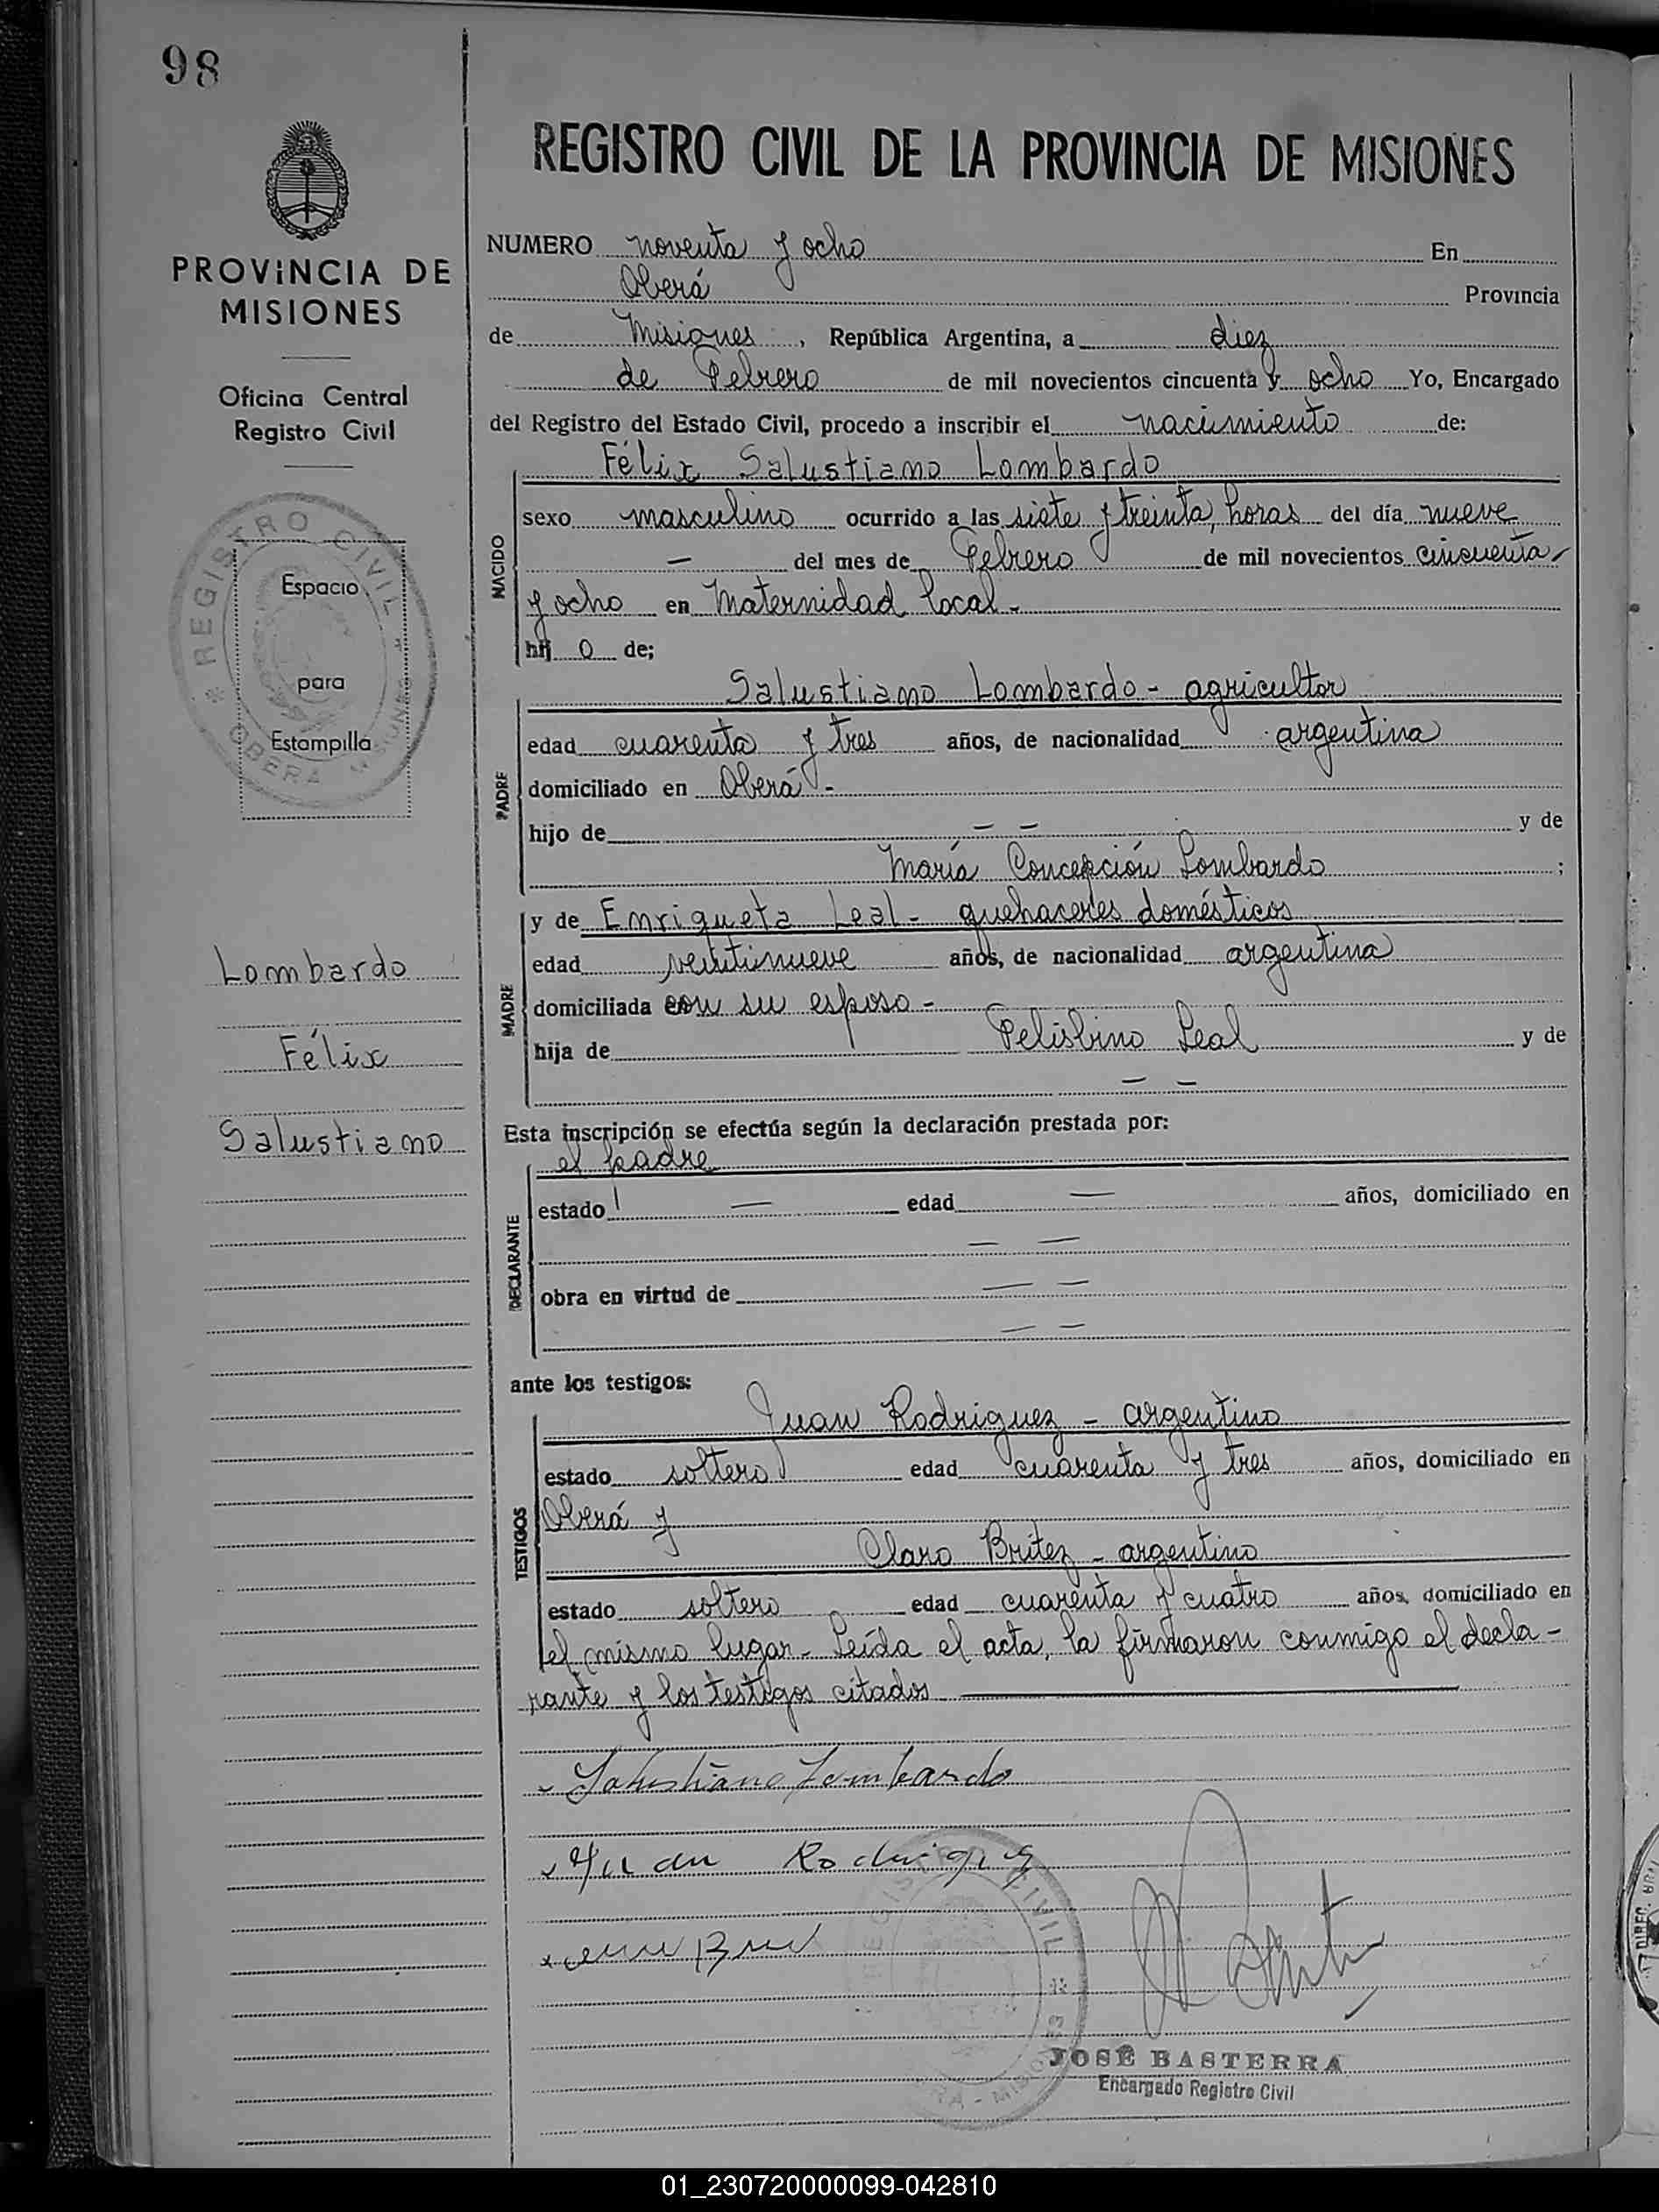 98
PROVINCIA DE
MISIONES
Oficina Central
Registro Civil
REGISTRO CIVIL
OBERA MISIONES
Espacio
para
Estampilla
Lombardo
Félix
Salustiano
REGISTRO CIVIL DE LA PROVINCIA DE MISIONES
NUMERO noventa y ocho En
Oberá Provincia
de Misiones, República Argentina, a diez
de Febrero de mil novecientos cincuenta y ocho Yo, Encargado
del Registro del Estado Civil, procedo a inscribir el nacimiento de:
NACIDO
Félix Salustiano Lombardo
sexo masculino ocurrido a las siete y treinta, horas del día nueve
— del mes de Febrero de mil novecientos cincuenta
y ocho en Maternidad local -
hij o de;
PADRE
Salustiano Lombardo - agricultor
edad cuarenta y tres años, de nacionalidad argentina
domiciliado en Oberá -
hijo de — — y de
María Concepción Lombardo ;
MADRE
y de Enriqueta Leal - quehaceres domésticos
edad veintinueve años, de nacionalidad argentina
domiciliada con su esposo -
hija de Felisbino Leal y de
— —
Esta inscripción se efectúa según la declaración prestada por:
DECLARANTE
el padre
estado — edad — años, domiciliado en
— —
obra en virtud de — —
— —
ante los testigos:
TESTIGOS
Juan Rodriguez - argentino
estado soltero edad cuarenta y tres años, domiciliado en
Oberá y
Claro Britez - argentino
estado soltero edad cuarenta y cuatro años, domiciliado en
el mismo lugar - Leída el acta, la firmaron conmigo el decla-
rante y los testigos citados
Salustiano Lombardo
Juan Rodriguez
REGISTRO CIVIL
JOSÉ BASTERRA
Encargado Registro Civil
01_230720000099-042810